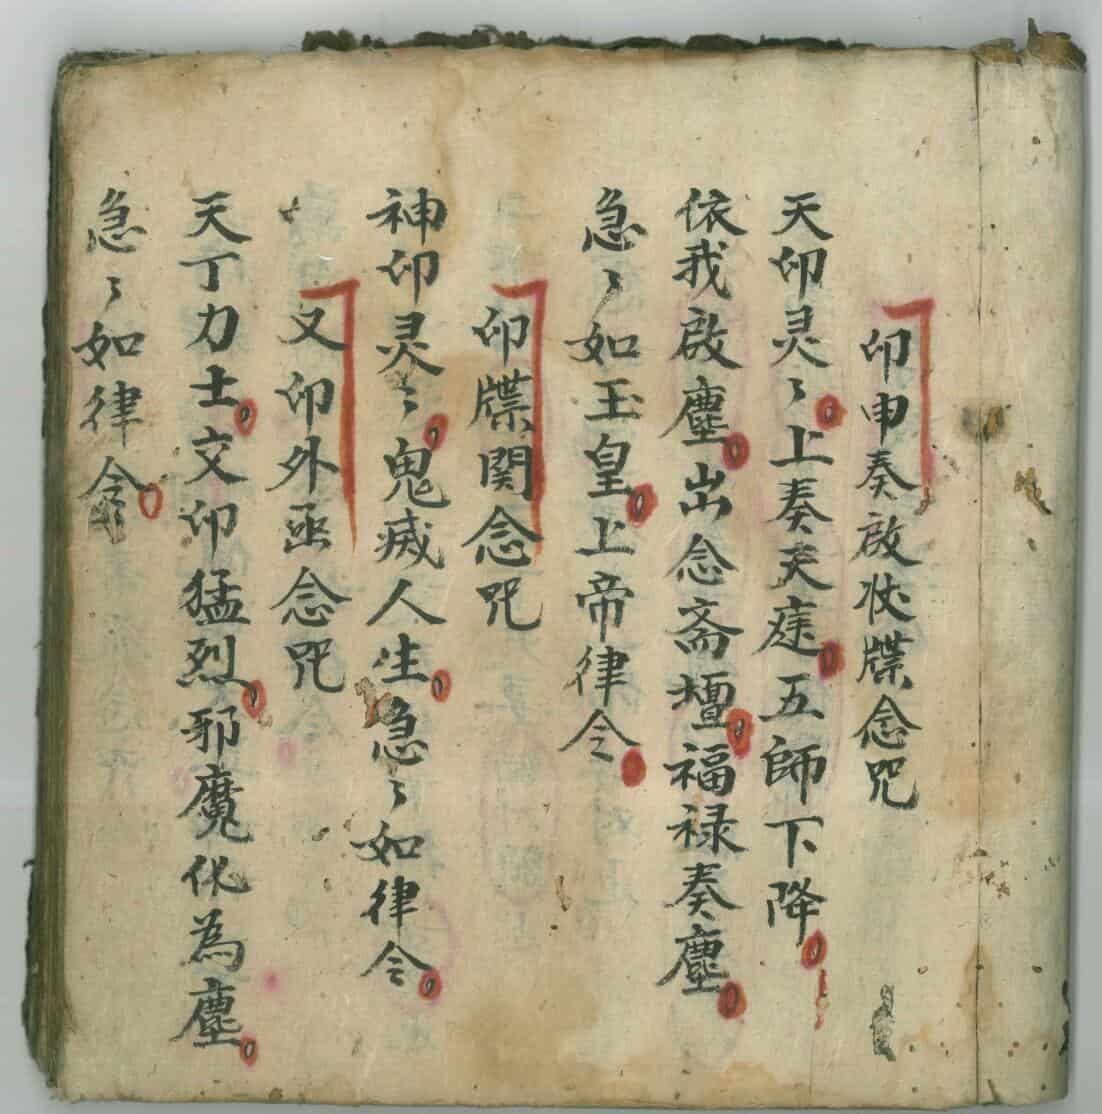 印申奏啟状牒念咒
天印灵〻上奏天庭五師下降
依我啟塵出念斋壇福禄奏塵
急〻如玉皇上帝律令
印牒関念咒
神印灵〻鬼威人生急〻如律令
又印外函念咒
天丁力士交印猛烈邪魔化為塵
急〻如律令